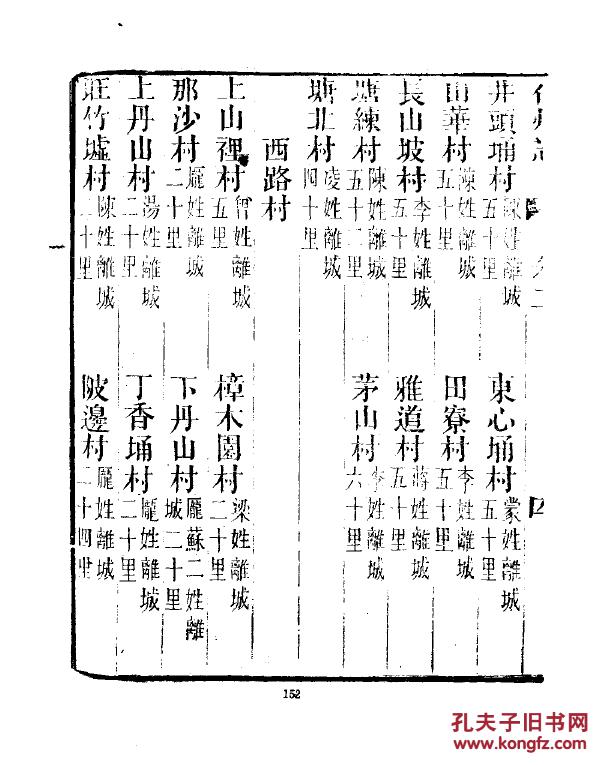 井頭埇村 姓離城五十里 東心埇村 蒙姓離城五十里
田華村 陳姓離城五十里 田寮村 李姓離城五十里
長山坡村 李姓離城五十里 雅道村 蔣姓離城五十里
塘練村 陳姓離城五十二里 茅山村 李姓離城六十里
塘北村 凌姓離城四十里
西路村
上山裡村 曾姓離城五里 樟木園村 梁姓離城二十里
那沙村 龐姓離城二十里 下丹山村 龐蘇二姓離城二十里
上丹山村 湯姓離城二十里 丁香埇村 龐姓離城二十里
旺竹墟村 陳姓離城二十里 陂邊村 龐姓離城二十四里
152
孔夫子旧书网
www.kongfz.com